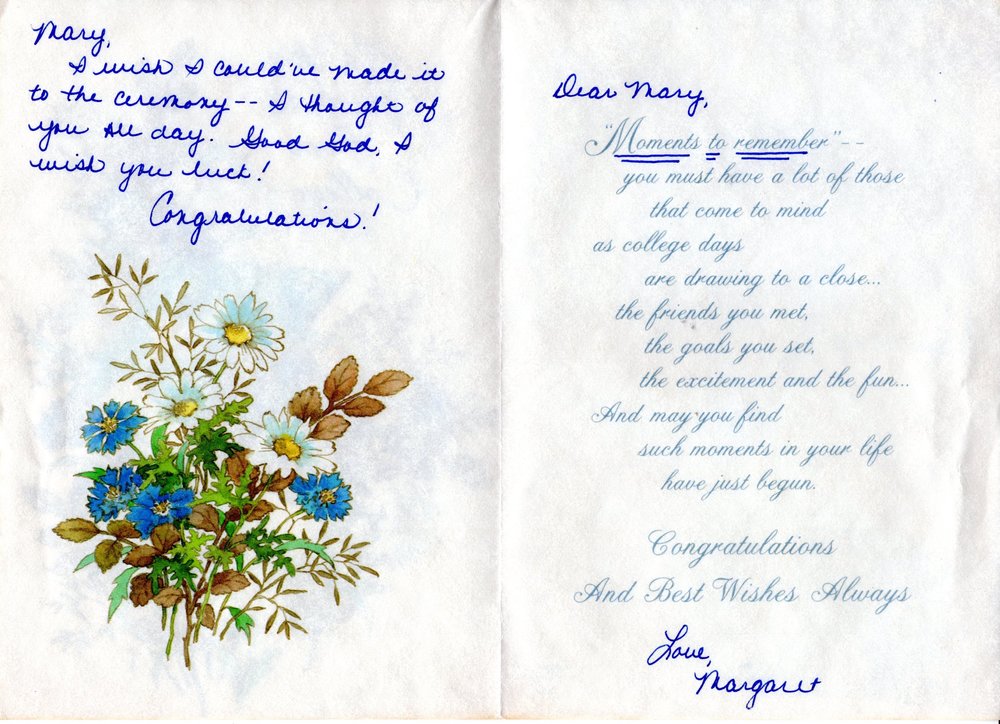 Mary,
I wish I could've made it
to the ceremony -- I thought of
you all day. Good God, I
wish you luck!
Congratulations!
Dear Mary,
"Moments to remember" --
you must have a lot of those
that come to mind
as college days
are drawing to a close...
the friends you met,
the goals you set,
the excitement and the fun...
And may you find
such moments in your life
have just begun.
Congratulations
And Best Wishes Always
Love,
Margaret